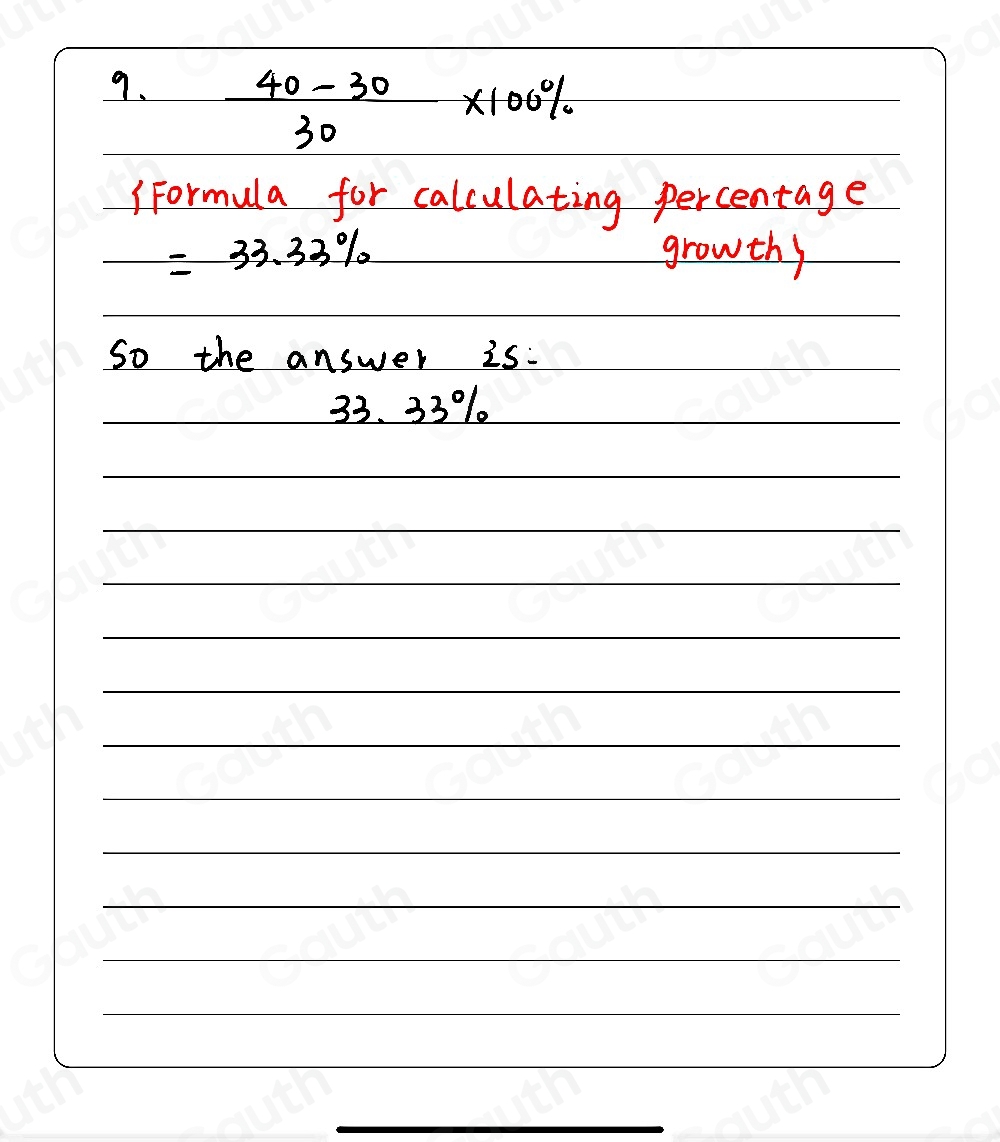 9. 40-30 / 30 ×100%
{Formula for calculating percentage
= 33.33% growth}
So the answer is:
33.33%